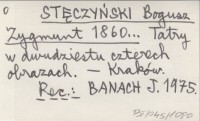 0 STĘCZYŃSKI Bogusz
Zygmunt 1860... Tatry
w dwudziestu czterech
obrazach. – Kraków.
Rec.: BANACH J. 1975.